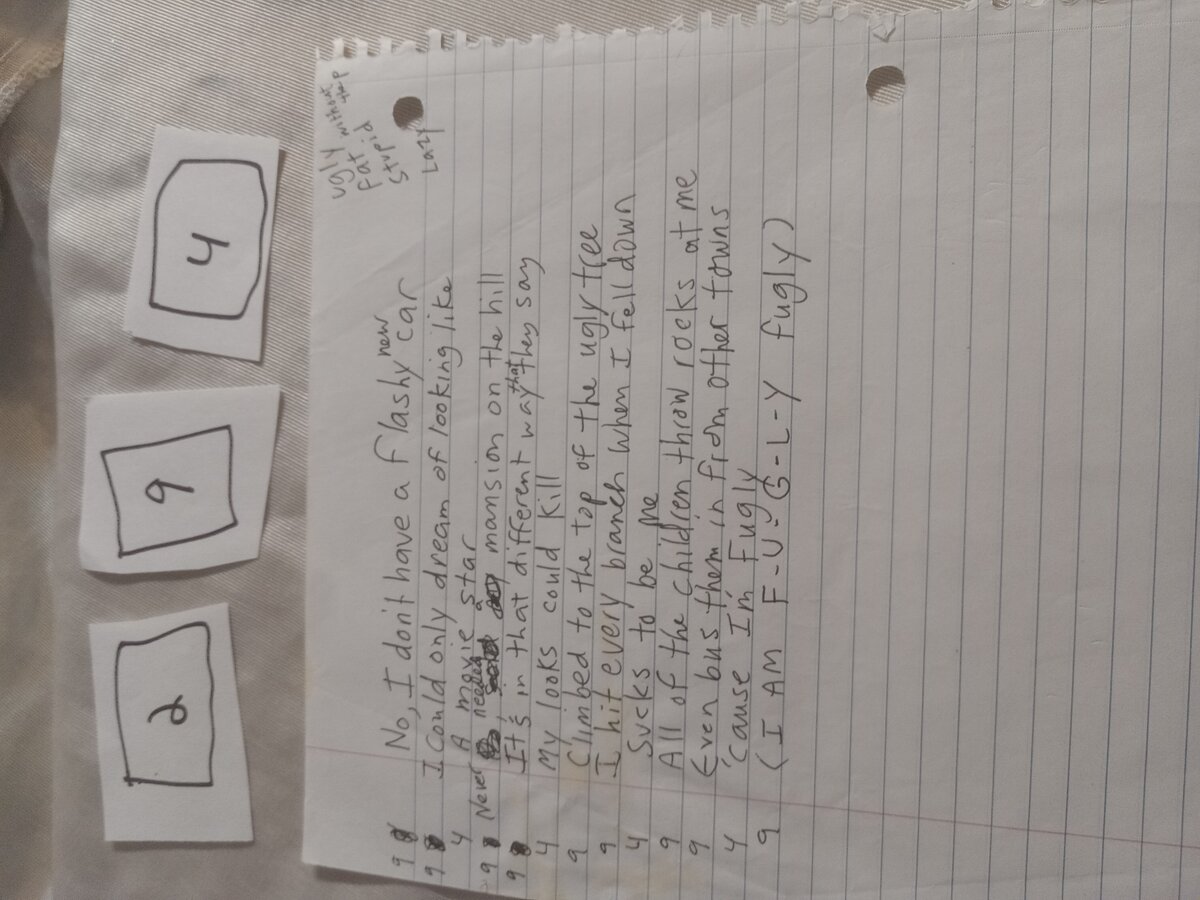 2
9
4
ugly without
Fat the P
Stupid
Lazy
9 No, I don't have a flashy new car
9 I Could only dream of looking like
4 A movie star
9 Never needed a mansion on the hill
9 It's in that different way that they say
4 My looks could kill
9 Climbed to the top of the ugly tree
9 I hit every branch when I fell down
4 Sucks to be me
9 All of the children throw rocks at me
9 Even bus them in from other towns
4 'Cause I'm Fugly
9 (I AM F-U-G-L-Y fugly)